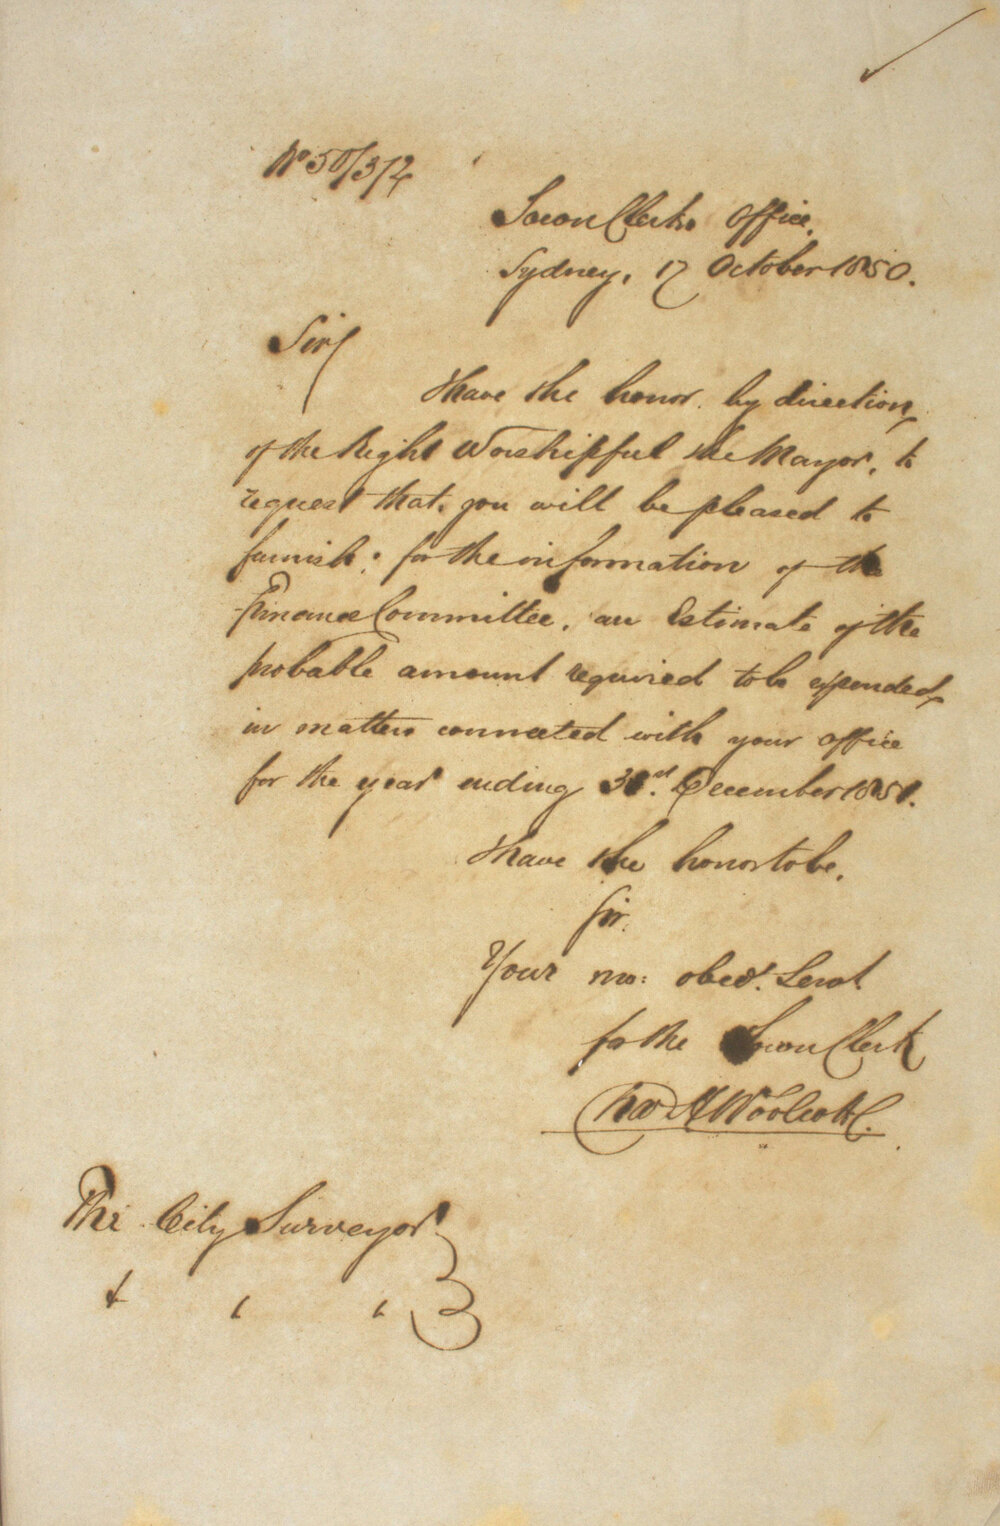 No 50/3/2
Town Clerks Office,
Sydney, 17 October 1850.
Sir
I have the honor by direction
of the Right Worshipful the Mayor, to
request that you will be pleased to
furnish, for the information of the
Finance Committee, an Estimate of the
probable amount required to be expended
in matters connected with your office
for the year ending 31st. December 1851.
I have the honor to be,
Sir.
Your mo: obedt. Servt.
for the Town Clerk
Woolcott
The City Surveyor